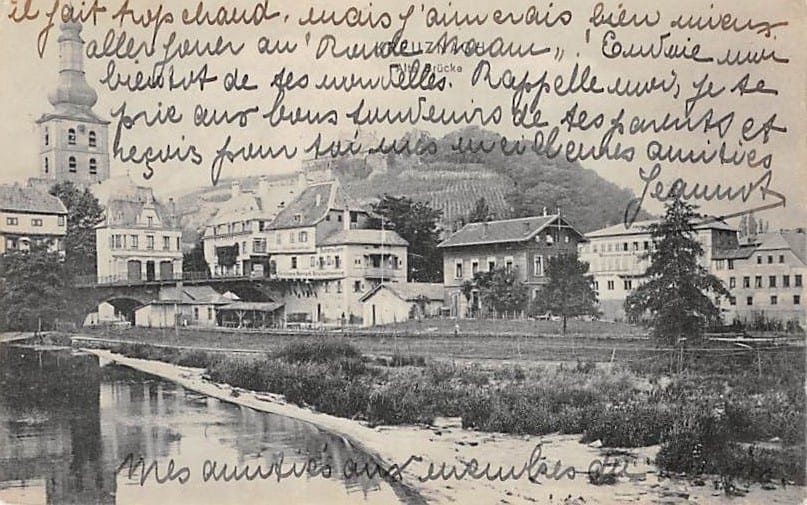 il fait trop chaud, mais j'aimerais bien mieux
aller jouer au "Rowde ". Envoie moi
KREUZNACH
Alte Brücke
bientôt de tes nouvelles. Rappelle moi, je te
prie aux bons souvenirs de tes parents et
reçois pour toi mes meilleures amitiés
Jeannot
Mes amitiés aux membres du